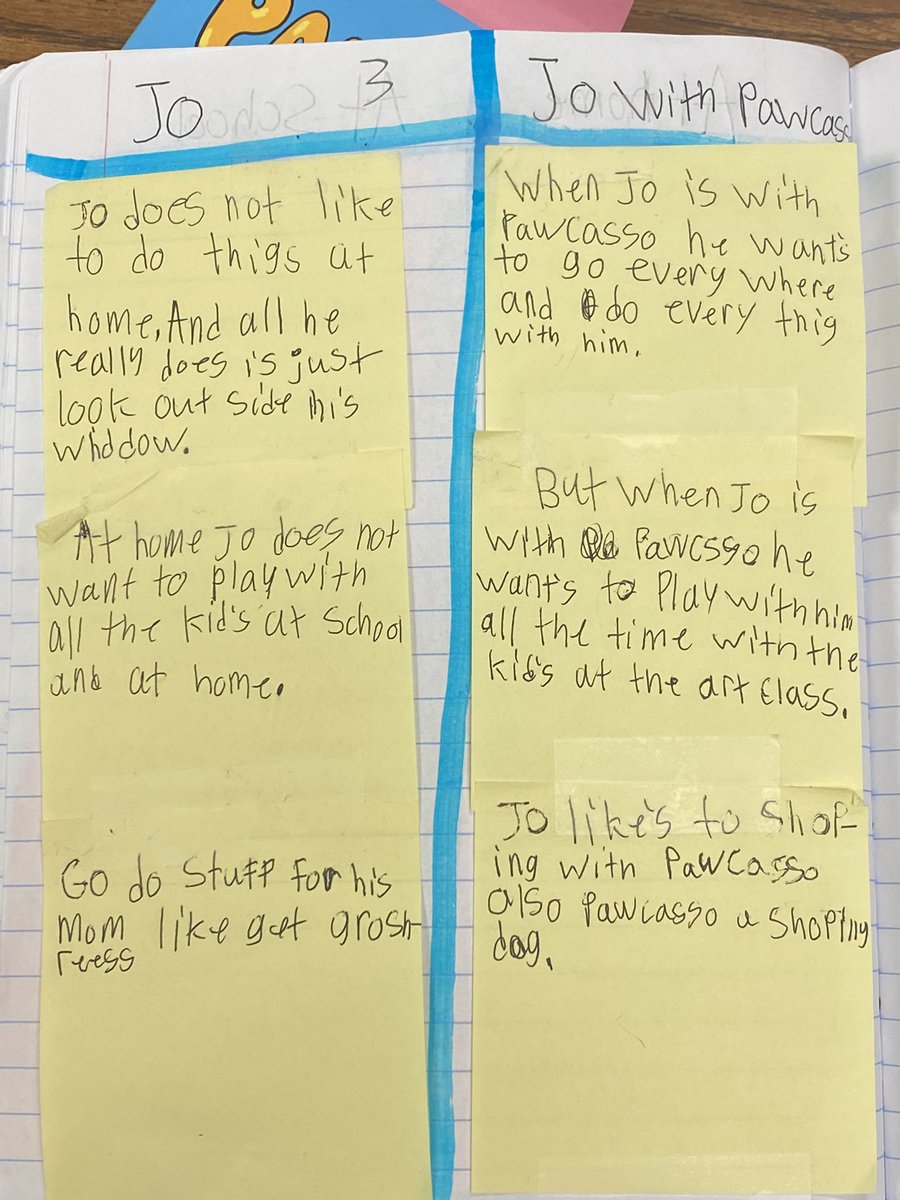 PA
Jo
3
Jo with Pawcass
Jo does not like
to do thigs at
home, And all he
really does is just
look out side his
whddow.
At home Jo does not
want to play with
all the kid's at school
and at home.
Go do stuff for his
Mom like get grosh-
reess
When Jo is with
Pawcasso he want's
to go every where
and do every thig
with him.
But when Jo is
with Pawcsso he
want's to Play with him
all the time with the
kid's at the art class.
Jo like's to shop-
ing with Pawcasso
also Pawcasso a shoping
dog.